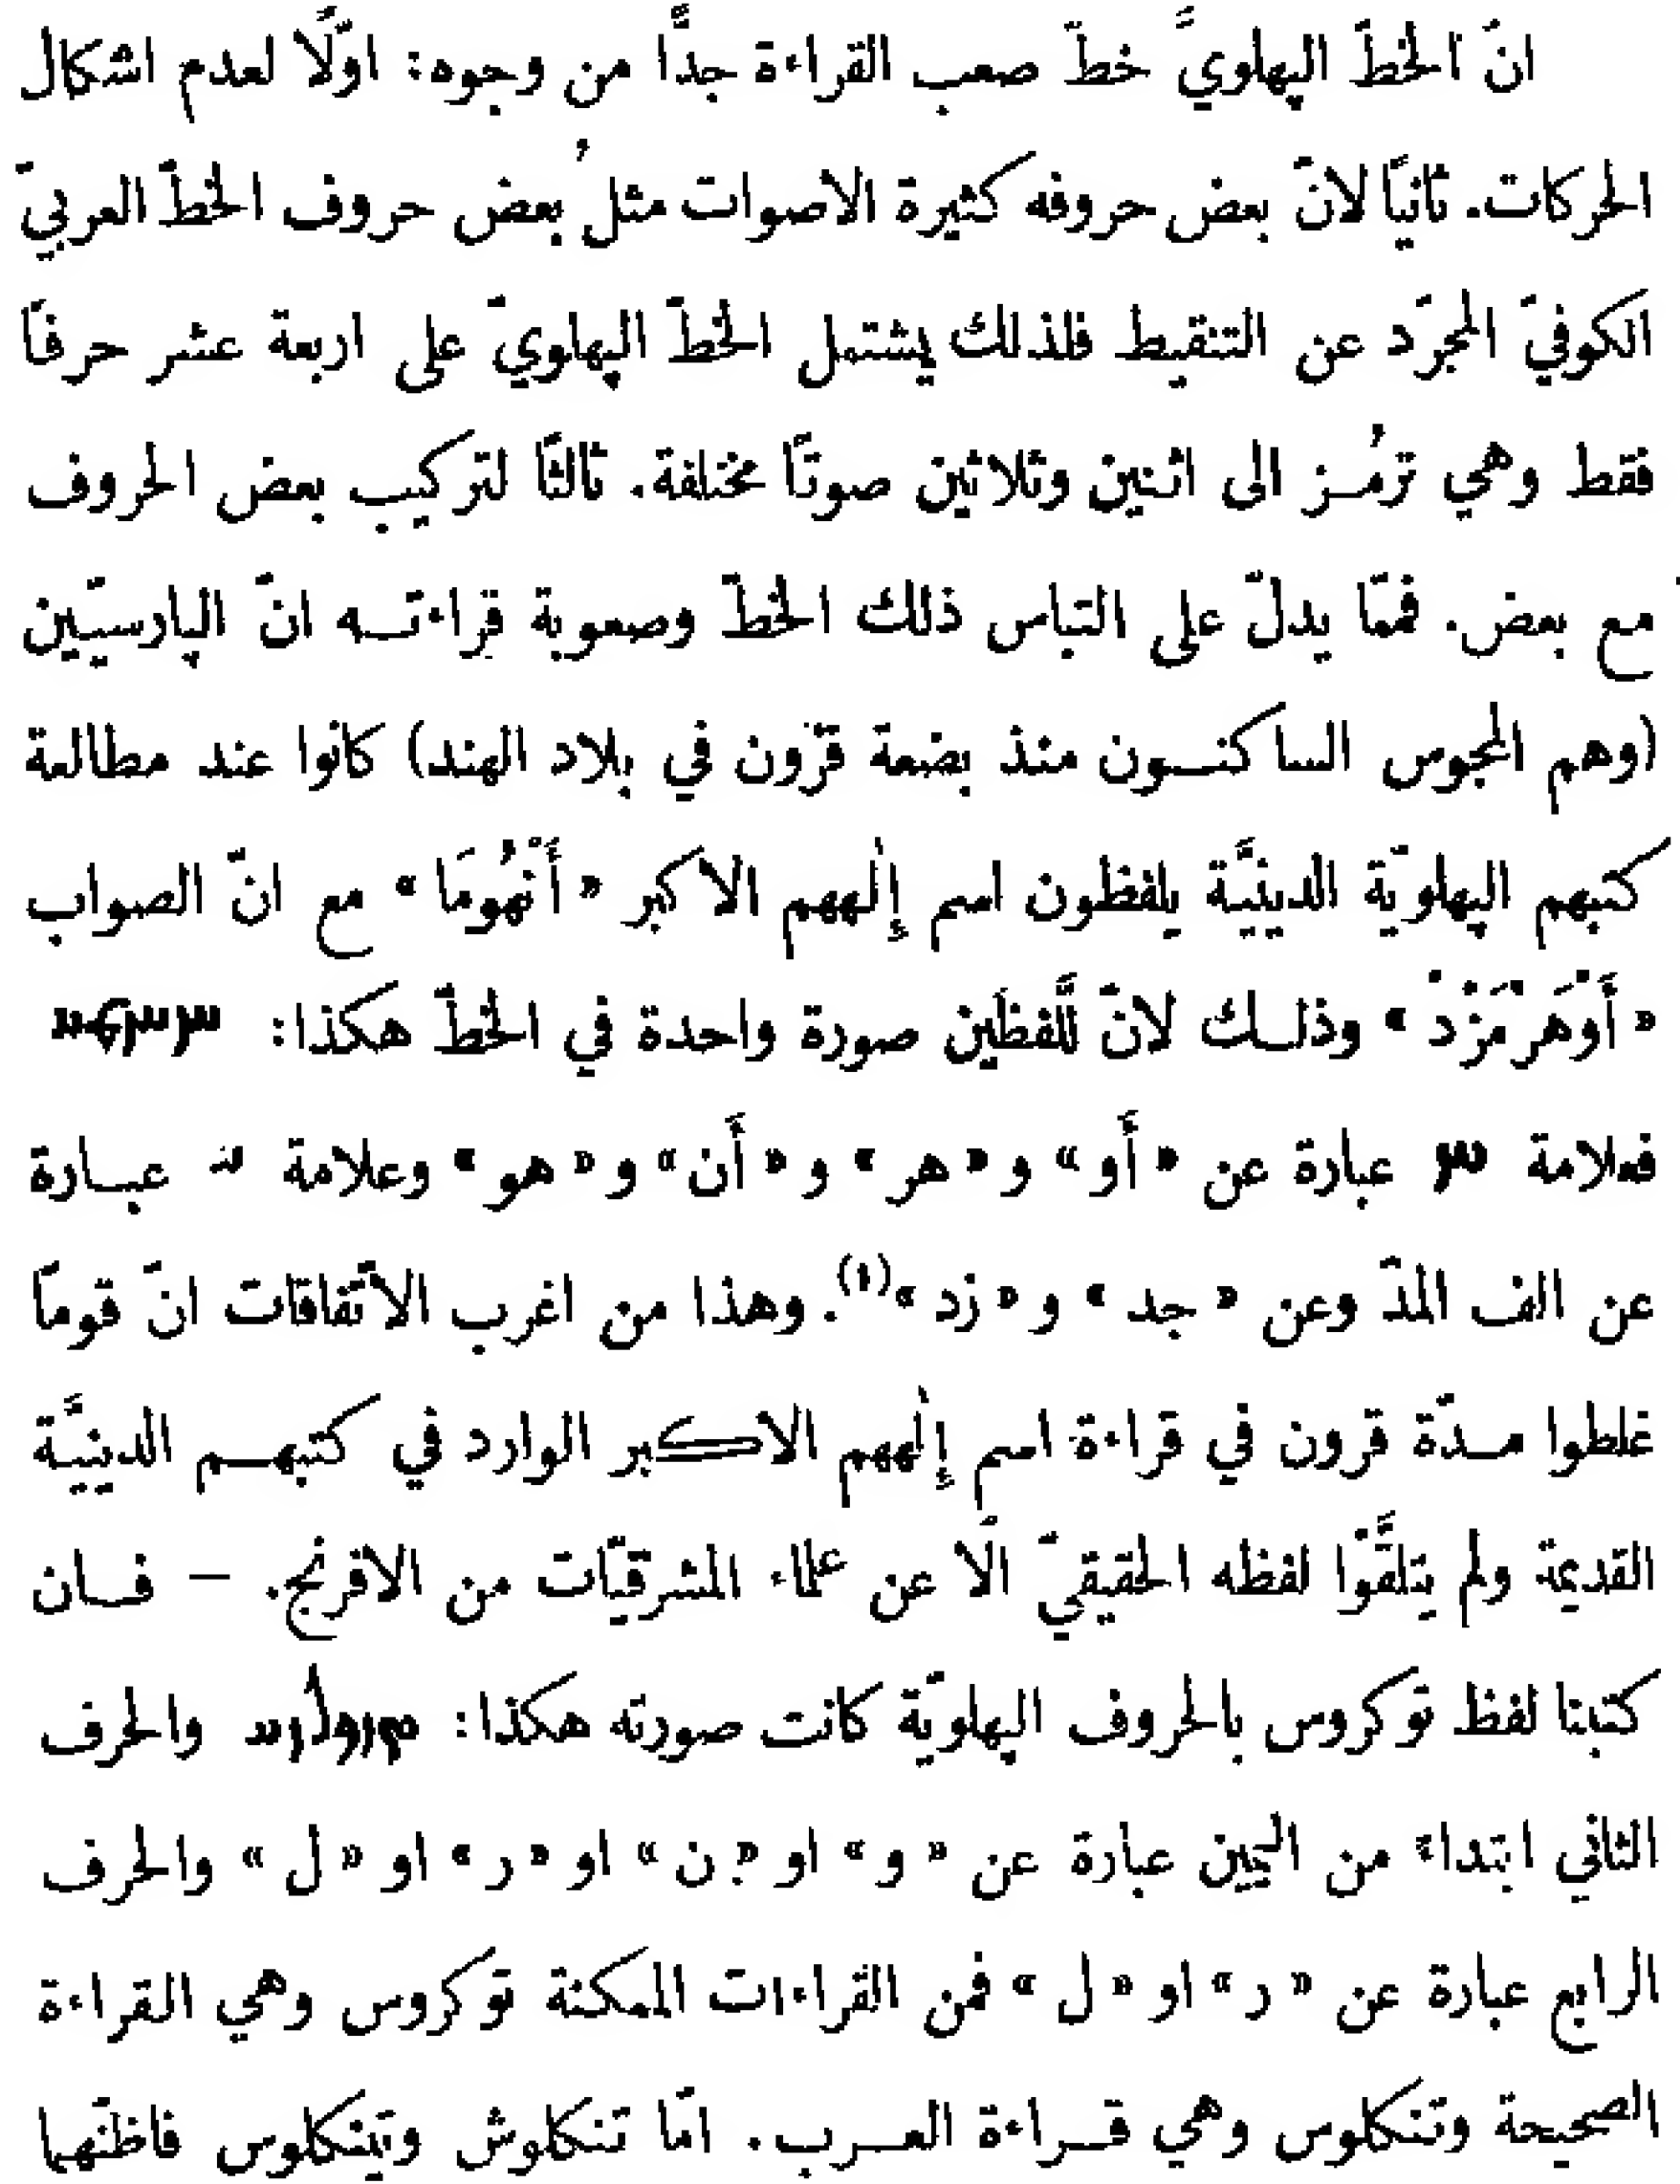 انّ الخطّ الپهلويّ خطّ صعب القراءة جدًّا من وجوه: اوّلًا لعدم اشكال
الحركات. ثانيًا لانّ بعض حروفه كثيرة الاصوات مثل بعض حروف الخطّ العربيّ
الكوفيّ المجرّد عن التنقيط فلذلك يشتمل الخطّ الپهلويّ على اربعة عشر حرفًا
فقط وهي ترمُـز الى اثنين وثلاثين صوتًا مختلفة. ثالثًا لتركيب بعض الحروف
مع بعض. فممّا يدلّ على التباس ذلك الخطّ وصعوبة قراءتـه انّ الپارسيّين
(وهم المجوس الساكنـون منذ بضعة قرون في بلاد الهند) كانوا عند مطالعة
كتبهم الپهلويّة الدينيَّة يلفظون اسم إلٰههم الاكبر «أَنْهُومَا» مع انّ الصواب
«أَوْهَرْمَزْدْ» وذلـك لانّ للَّفظَين صورة واحدة في الخطّ هكذا:
فعلامة عبارة عن «أَو» و«هر» و«أَن» و«هو» وعلامة عبـارة
عن الف المدّ وعن «جد» و«زد»(١). وهذا من اغرب الاتّفاقات انّ قومًا
غلطوا مـدّة قرون في قراءة اسم إلٰههم الاكبر الوارد في كتبهـم الدينيَّة
القديمة ولم يتلقَّوْا لفظه الحقيقيّ الّا عن علماء المشرقيّات من الافرنج. – فـان
كتبنا لفظ توكروس بالحروف الپهلويّة كانت صورته هكذا: والحرف
الثاني ابتداءً من اليمين عبارة عن «و» او «ن» او «ر» او «ل» والحرف
الرابع عبارة عن «ر» او «ل» فمن القراءات الممكنة توكروس وهي القراءة
الصحيحة وتنكلوس وهي قـراءة العـرب. امّا تنكلوش وتينكلوس فاظنّهما